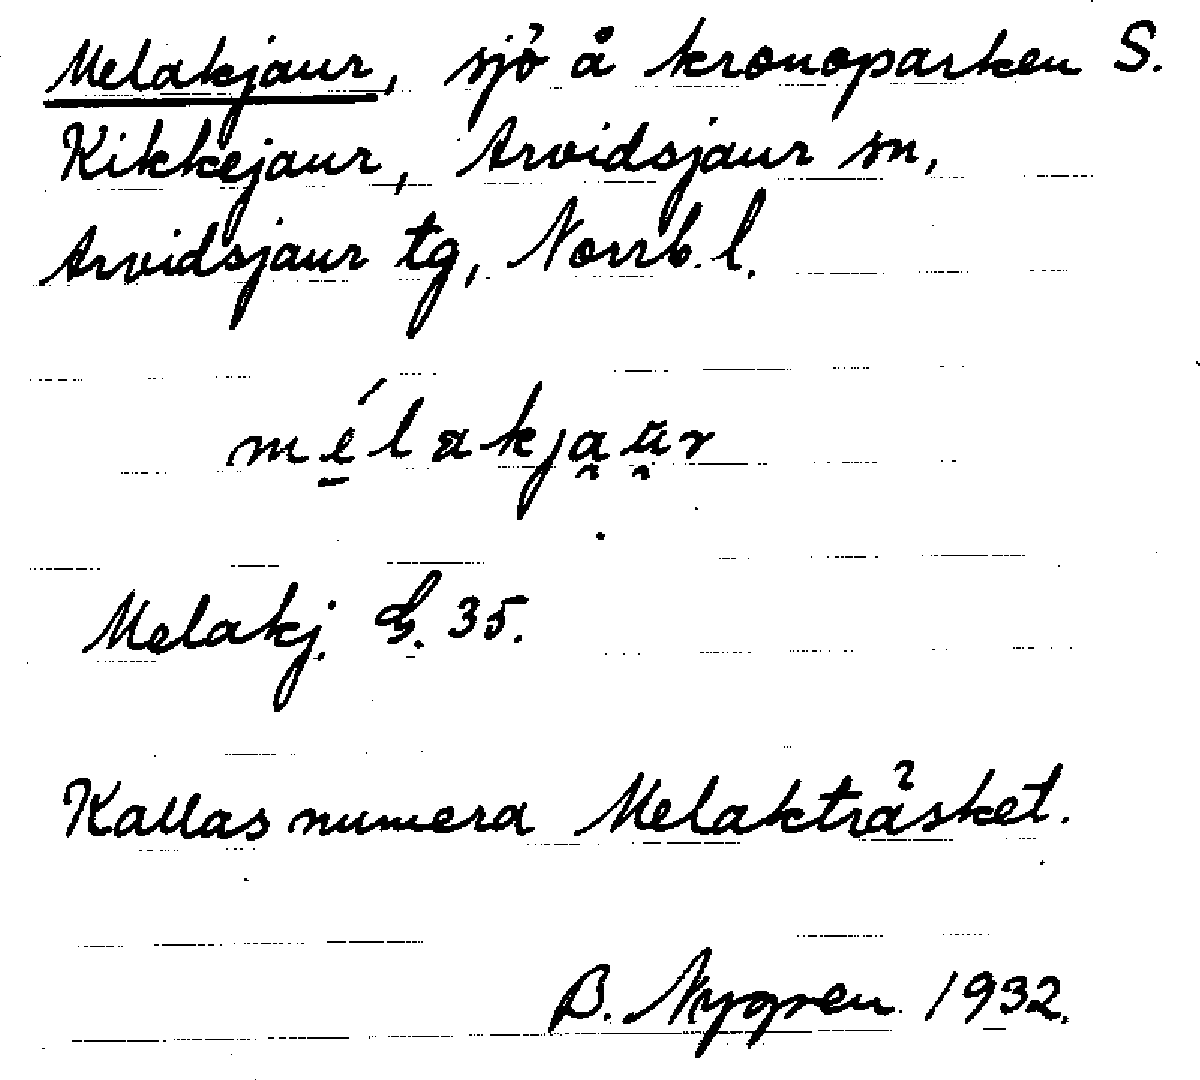 Melakjaur, sjö å kronoparken S.
Kikkejaur, Arvidsjaur sn,
Arvidsjaur tg, Norrb. l.
mélakjau̯r
Melakj. 35.
Kallas numera Melakträsket.
B. Nygren 1932.